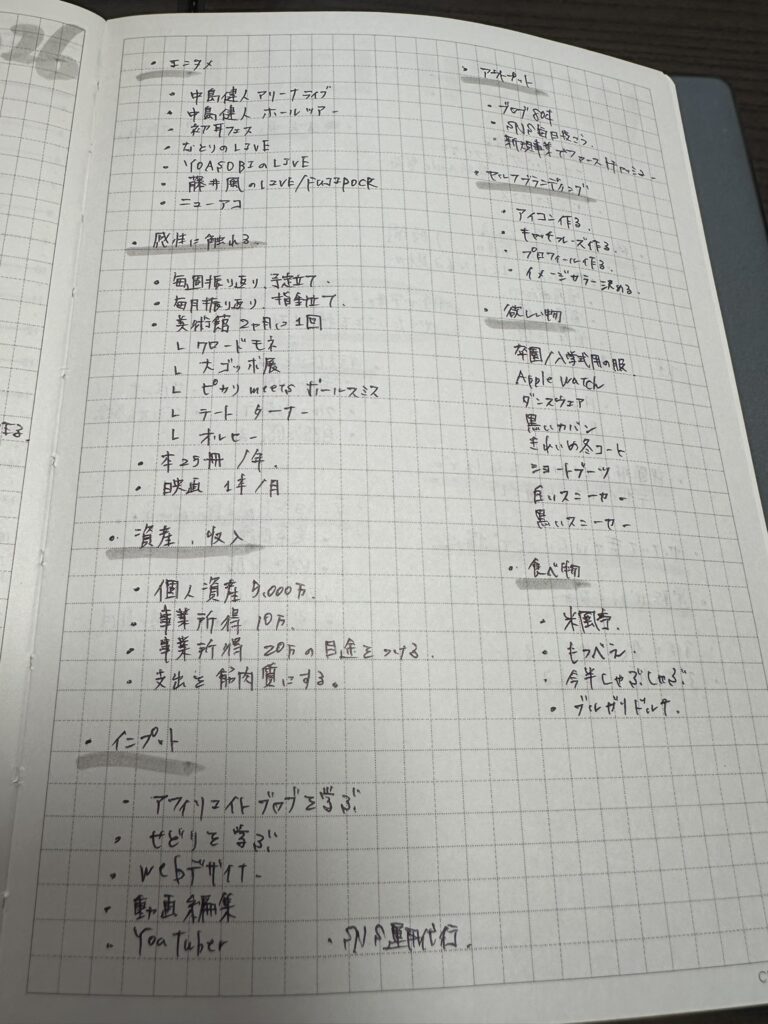 26
・エンタメ
・中島健人 アリーナライブ
・中島健人 ホールツアー
・初耳フェス
・なとりのLIVE
・YOASOBIのLIVE
・藤井風のLIVE/FUJIROCK
・ニューアコ
・感性に触れる
・毎週振り返り、予定立て
・毎月振り返り、指針立て
・美術館 2ヶ月に1回
└ クロードモネ
└ 大ゴッホ展
└ ピカソ meets ポールスミス
└ テート ターナー
└ オルセー
・本25冊/年
・映画 1本/月
・資産、収入
・個人資産 5,000万
・事業所得 10万
・事業所得 20万の目途をつける
・支出を筋肉質にする。
・インプット
・アフィリエイトブログを学ぶ
・せどりを学ぶ
・webデザイナー
・動画編集
・YouTuber
・SNS運用代行
・アウトプット
・ブログ80本
・SNS毎日投こう
・新規事業でファーストキャッシュ
・セルフブランディング
・アイコン作る
・キャッチフレーズ作る
・プロフィール作る
・イメージカラー決める
・欲しい物
卒園/入学式用の服
Apple watch
ダンスウェア
黒いカバン
きれいめ冬コート
ショートブーツ
白いスニーカー
黒いスニーカー
・食べ物
・米風亭
・もつべえ
・今半しゃぶしゃぶ
・ブルガリドルチ